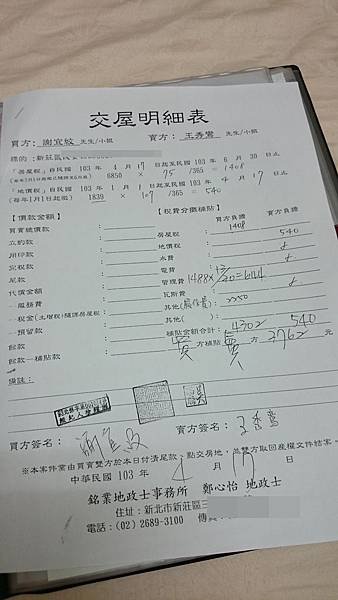 交屋明細表
買方：謝宜紋 先生/小姐 賣方：王秀鶯 先生/小姐
標的：新莊區
「房屋稅」自民國 103 年 4 月 17 日起至民國 103 年 6 月 30 日止
6850 × 75 /365 = 1408
「地價稅」自民國 103 年 1 月 1 日起至民國 103 年 4 月 17 日止
(每年1月1日起徵) 1839 × 107 /365 = 540
【價款金額】 【稅費分攤補貼】 買方負擔 賣方負擔
買賣總價款： 房屋稅： 1408
立約款： 地價稅： 540
用印款： 水費：
完稅款： 電費：
尾款： 管理費： 1488×13/30=644
代償金額： 瓦斯費：
－服務費： 其他( )： 2250
－稅金(土增稅)隨課房屋稅： 其他( )：
－預留款： 補貼金額合計： 4302 540
餘款： 買 方補貼 賣 方 3762 元
餘款－補貼款：
備註：
買方簽名： 賣方簽名： 王秀鶯
※本案件當由買賣雙方於本日付清尾款，點交房地，並雙方取回產權文件結案。
中華民國 103 年 4 月 17 日
銘業地政士事務所 鄭心怡 地政士
住址：新北市新莊區三
電話：(02) 2689-3100 傳